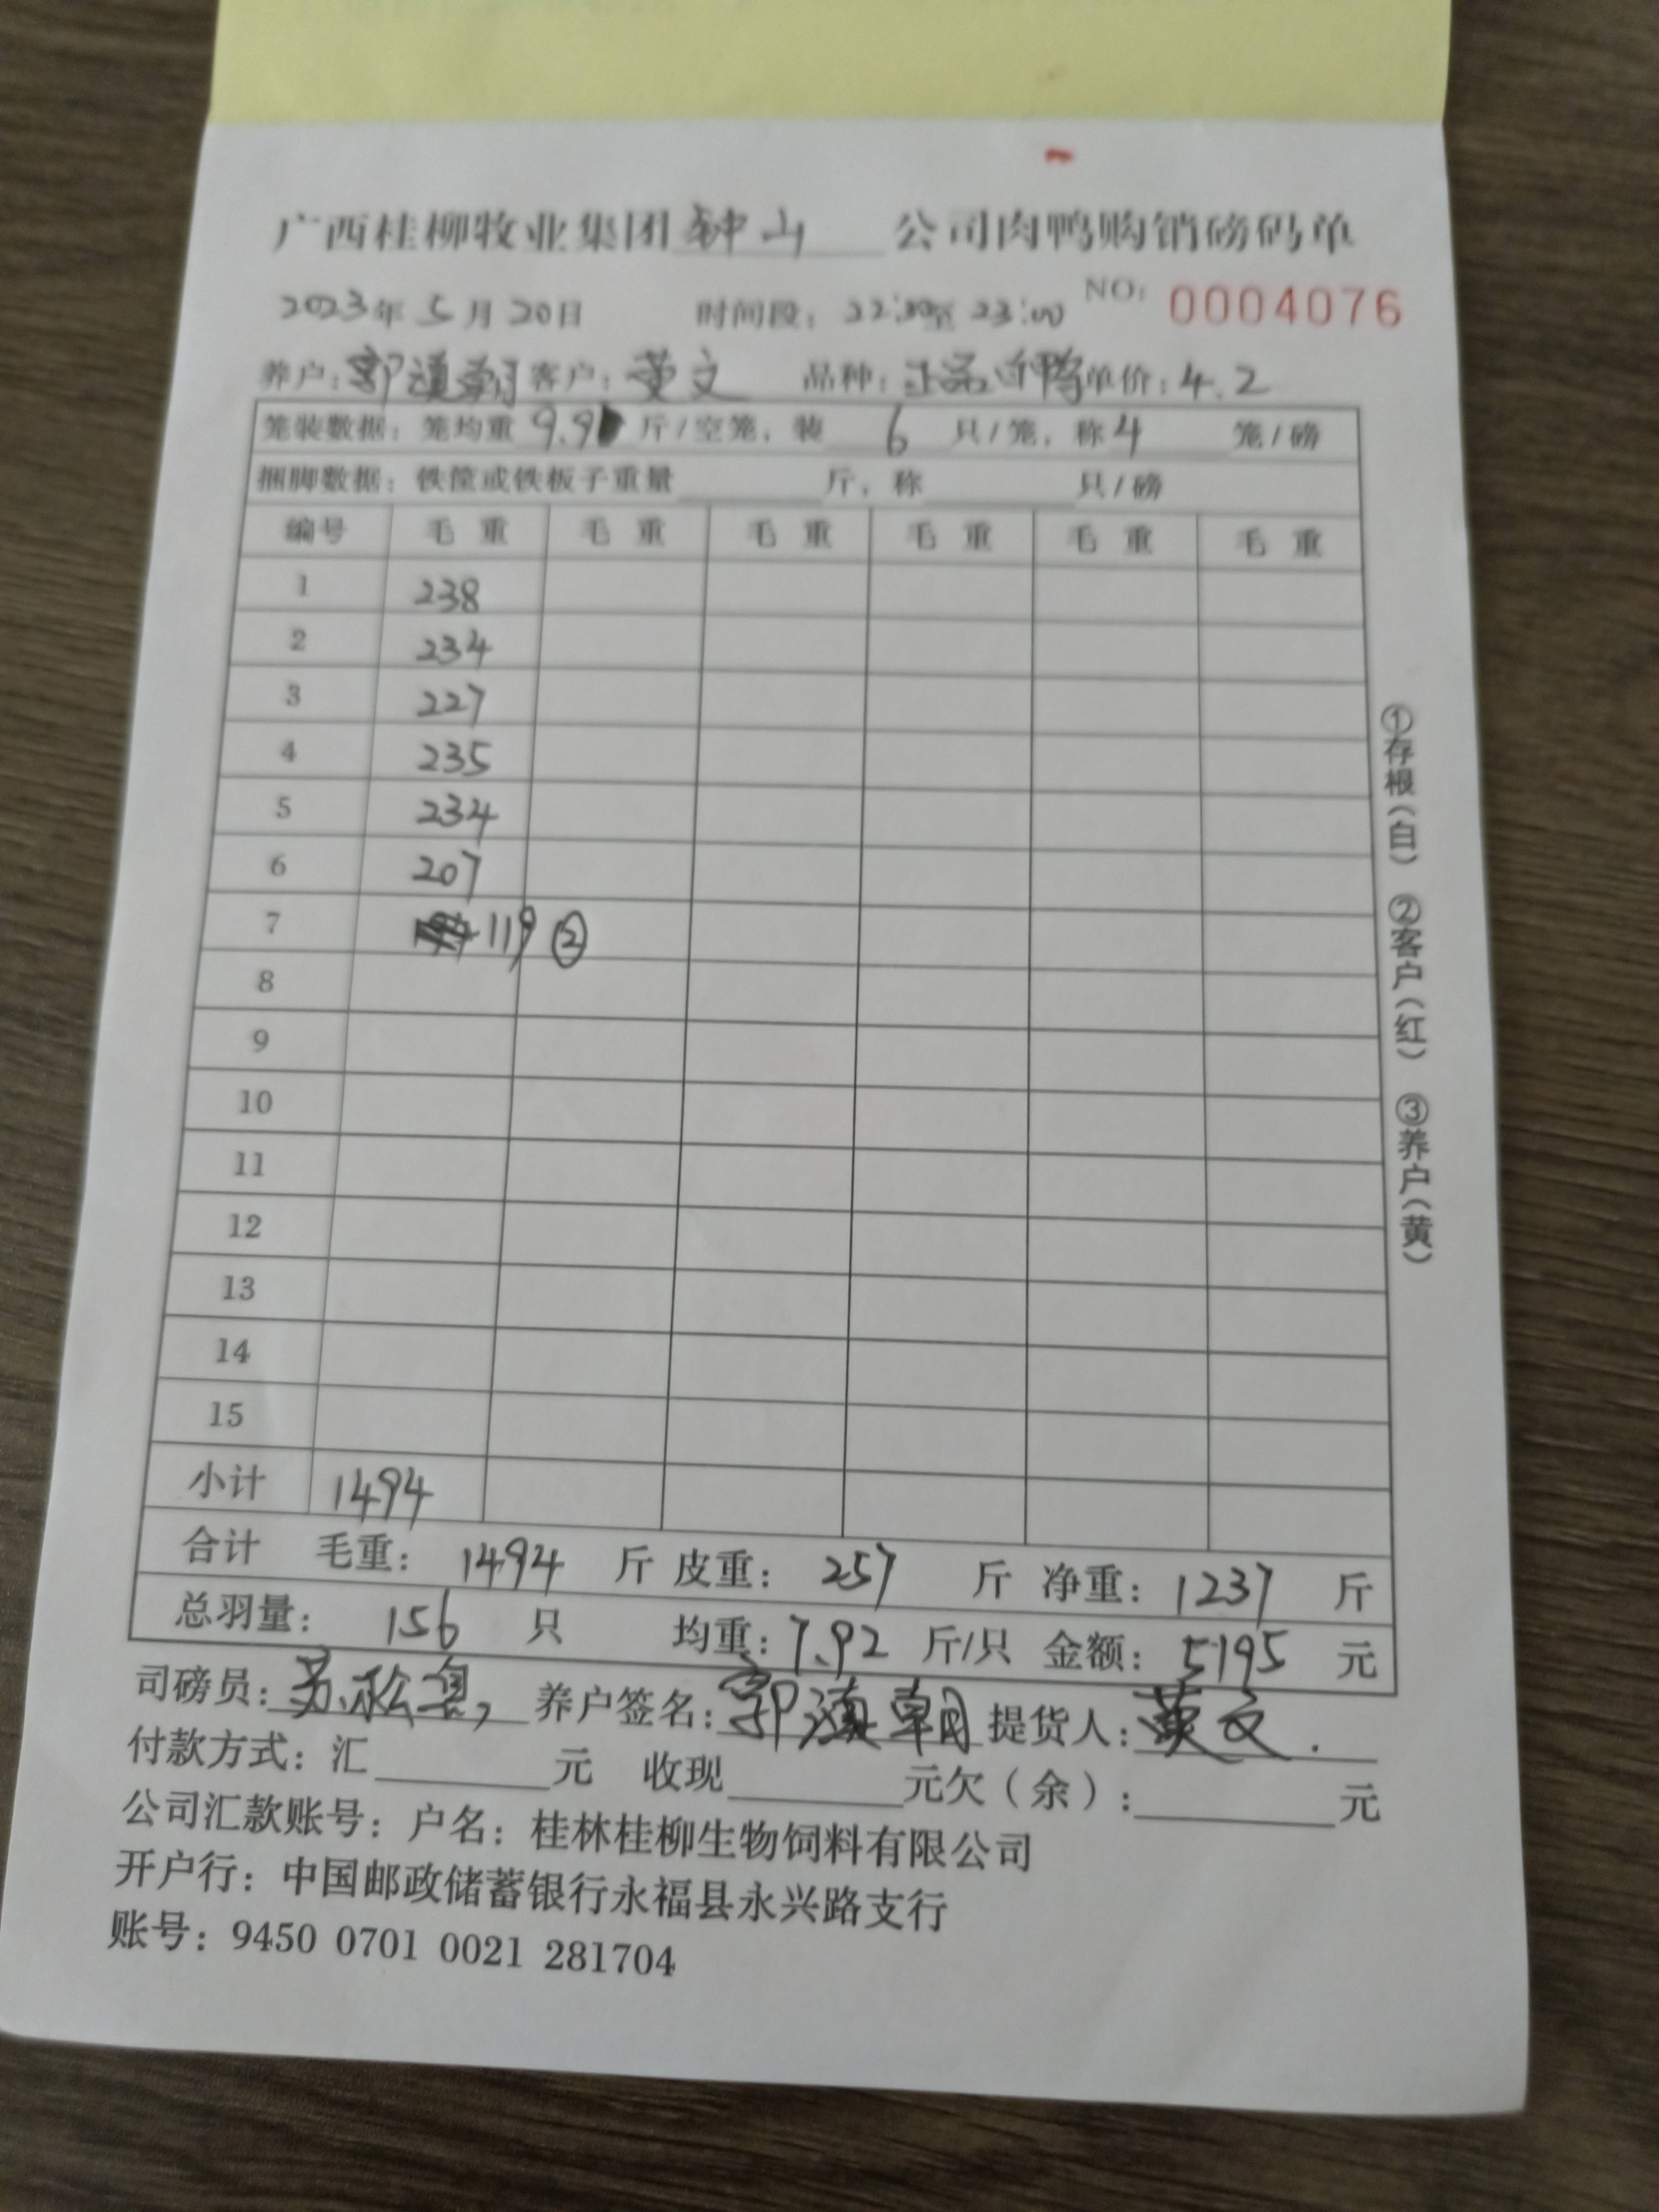 广西桂柳牧业集团钟山公司肉鸭购销磅码单
2023年5月20日 时间段：22:30至23:00 NO: 0004076
养户：郭滇朝 客户：黄文 品种：正品白鸭 单价：4.2
笼装数据：笼均重 9.9 斤/空笼，装 6 只/笼，称 4 笼/磅
捆脚数据：铁筐或铁板子重量 斤，称 只/磅
编号 毛重 毛重 毛重 毛重 毛重 毛重
1 238
2 234
3 227
4 235
5 234
6 207
7 119 ②
8
9
10
11
12
13
14
15
小计 1494
合计 毛重：1494 斤 皮重：257 斤 净重：1237 斤
总羽量：156 只 均重：7.92 斤/只 金额：5195 元
司磅员：苏松 养户签名：郭滇朝 提货人：黄文.
付款方式：汇 元 收现 元欠（余）： 元
公司汇款账号：户名：桂林桂柳生物饲料有限公司
开户行：中国邮政储蓄银行永福县永兴路支行
账号：9450 0701 0021 281704
①存根（白） ②客户（红） ③养户（黄）